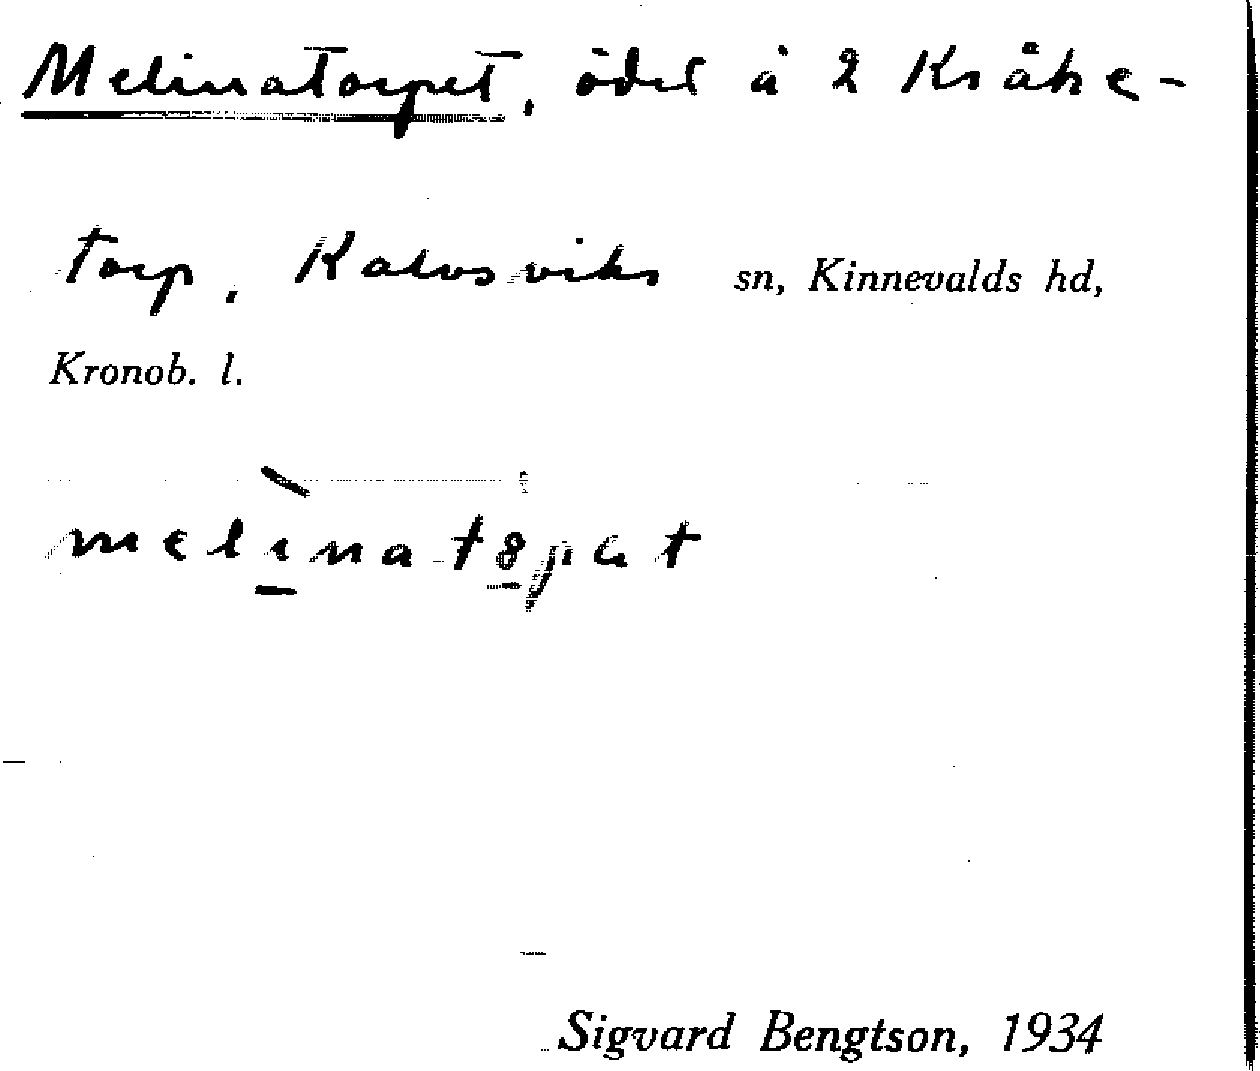 Melinatorpet, ödel å 2 Kråke-
torp, Kalvsviks sn, Kinnevalds hd,
Kronob. l.
Sigvard Bengtson, 1934